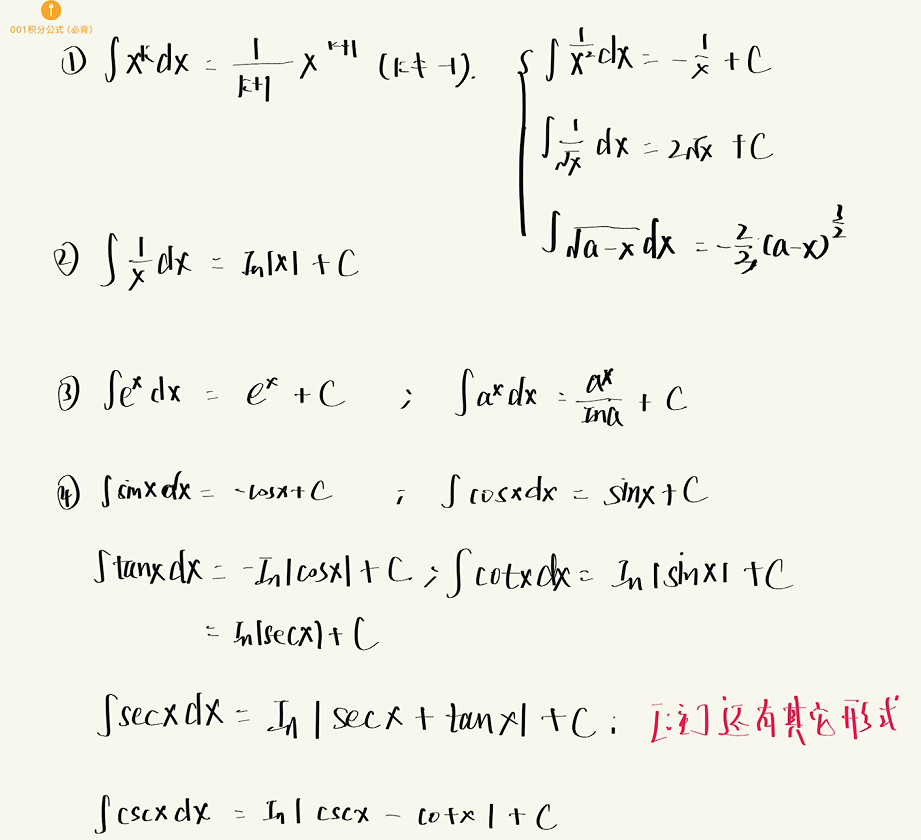 001积分公式 (必背)
① ∫x^k dx = 1/(k+1) x^(k+1) (k≠-1). { ∫ 1/x² dx = -1/x + C
∫ 1/√x dx = 2√x + C
∫ √(a-x) dx = -2/3 (a-x)^(3/2)
② ∫ 1/x dx = ln|x| + C
③ ∫e^x dx = e^x + C ; ∫a^x dx = a^x/lna + C
④ ∫sinx dx = -cosx + C ; ∫cosx dx = sinx + C
∫tanx dx = -ln|cosx| + C ; ∫cotx dx = ln|sinx| + C
= ln|secx) + C
∫secx dx = ln|secx + tanx| + C ; [注] 还有其它形式
∫cscx dx = ln|cscx - cotx| + C